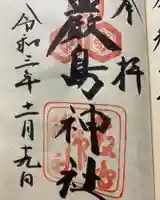 奉拝
厳島神社
令和三年十一月十九日